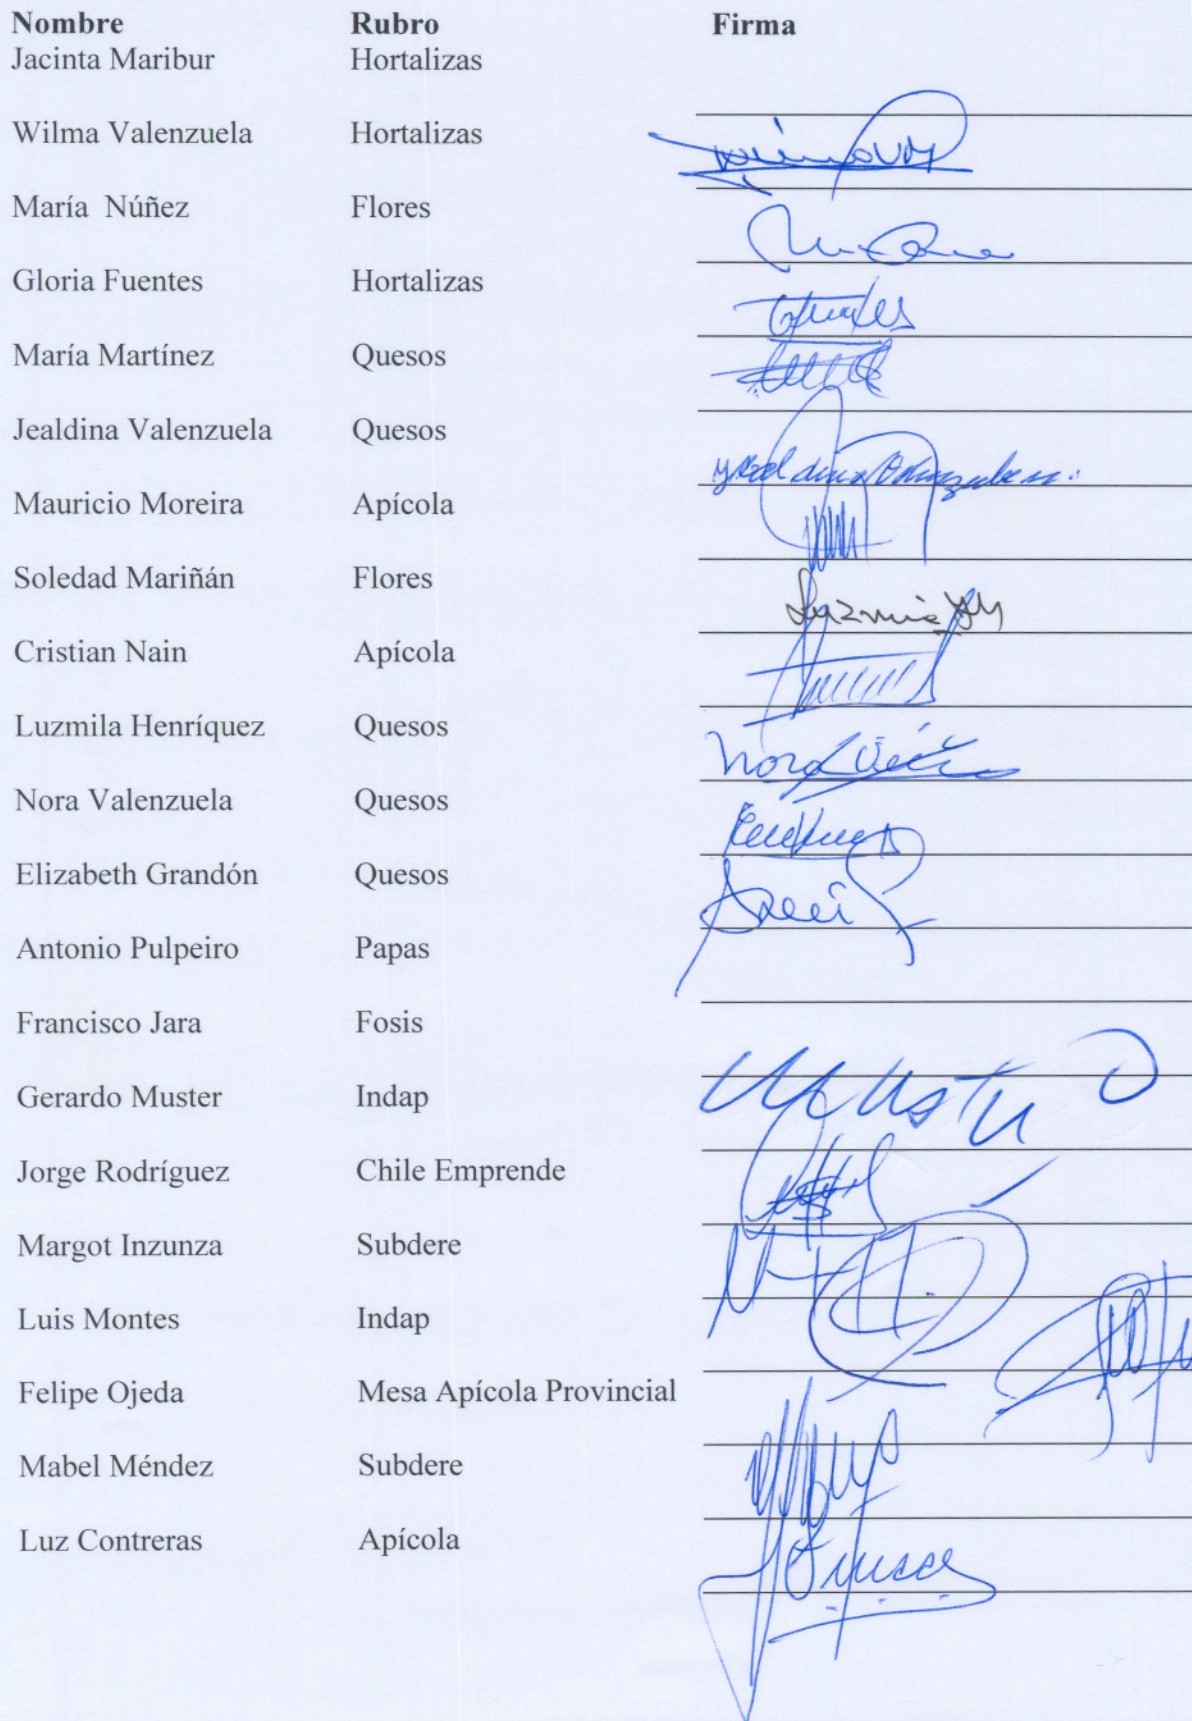 Nombre Rubro Firma
Jacinta Maribur Hortalizas
Wilma Valenzuela Hortalizas
María Núñez Flores
Gloria Fuentes Hortalizas
María Martínez Quesos
Jealdina Valenzuela Quesos
Mauricio Moreira Apícola
Soledad Mariñán Flores
Cristian Nain Apícola
Luzmila Henríquez Quesos
Nora Valenzuela Quesos
Elizabeth Grandón Quesos
Antonio Pulpeiro Papas
Francisco Jara Fosis
Gerardo Muster Indap
Jorge Rodríguez Chile Emprende
Margot Inzunza Subdere
Luis Montes Indap
Felipe Ojeda Mesa Apícola Provincial
Mabel Méndez Subdere
Luz Contreras Apícola